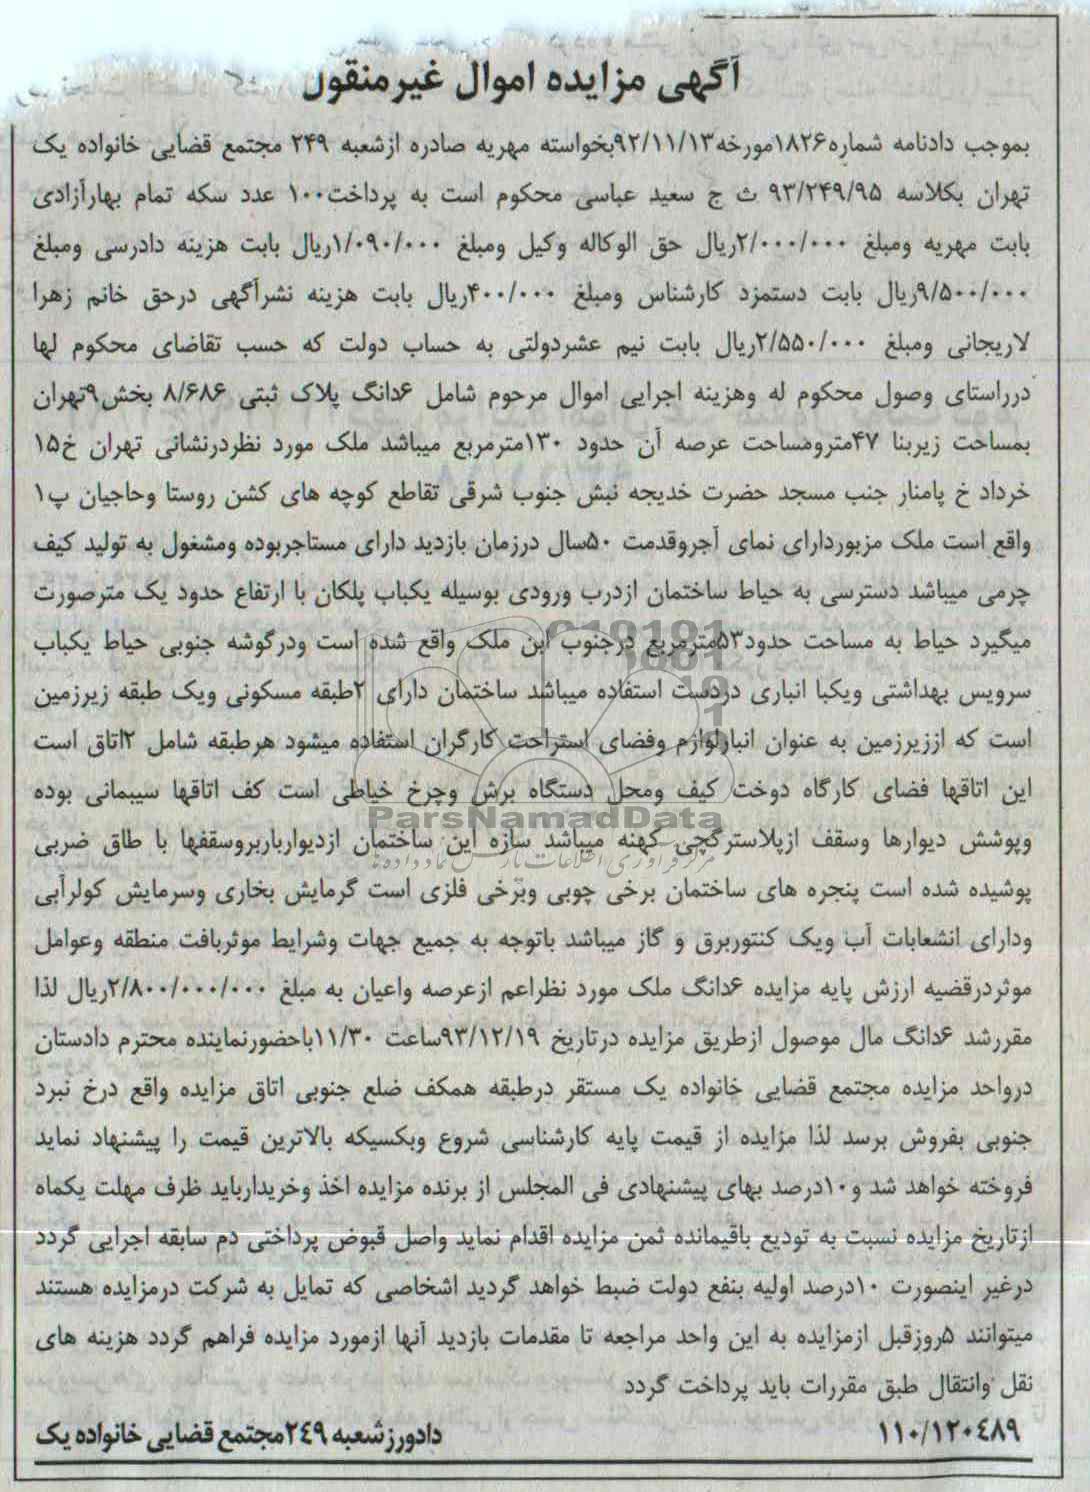 آگهی مزایده اموال غیرمنقول
بموجب دادنامه شماره۱۸۲۶مورخه۹۲/۱۱/۱۳بخواسته مهریه صادره ازشعبه ۲۴۹ مجتمع قضایی خانواده یک
تهران بکلاسه ۹۳/۲۴۹/۹۵ ث ج سعید عباسی محکوم است به پرداخت۱۰۰ عدد سکه تمام بهارآزادی
بابت مهریه ومبلغ ۲/۰۰۰/۰۰۰ریال حق الوکاله وکیل ومبلغ ۱/۰۹۰/۰۰۰ریال بابت هزینه دادرسی ومبلغ
۹/۵۰۰/۰۰۰ریال بابت دستمزد کارشناس ومبلغ ۴۰۰/۰۰۰ریال بابت هزینه نشرآگهی درحق خانم زهرا
لاریجانی ومبلغ ۲/۵۵۰/۰۰۰ریال بابت نیم عشردولتی به حساب دولت که حسب تقاضای محکوم لها
درراستای وصول محکوم له وهزینه اجرایی اموال مرحوم شامل ۶دانگ پلاک ثبتی ۸/۶۸۶ بخش۹تهران
بمساحت زیربنا ۴۷مترومساحت عرصه آن حدود ۱۳۰مترمربع میباشد ملک مورد نظردرنشانی تهران خ۱۵
خرداد خ پامنار جنب مسجد حضرت خدیجه نبش جنوب شرقی تقاطع کوچه های کشن روستا وحاجیان پ۱
واقع است ملک مزبوردارای نمای آجروقدمت ۵۰سال درزمان بازدید دارای مستاجربوده ومشغول به تولید کیف
چرمی میباشد دسترسی به حیاط ساختمان ازدرب ورودی بوسیله یکباب پلکان با ارتفاع حدود یک مترصورت
میگیرد حیاط به مساحت حدود۵۳مترمربع درجنوب این ملک واقع شده است ودرگوشه جنوبی حیاط یکباب
سرویس بهداشتی ویکبا انباری دردست استفاده میباشد ساختمان دارای ۲طبقه مسکونی ویک طبقه زیرزمین
است که اززیرزمین به عنوان انبارلوازم وفضای استراحت کارگران استفاده میشود هرطبقه شامل ۲اتاق است
این اتاقها فضای کارگاه دوخت کیف ومحل دستگاه برش وچرخ خیاطی است کف اتاقها سیبمانی بوده
وپوشش دیوارها وسقف ازپلاسترگچی کهنه میباشد سازه این ساختمان ازدیوارباربروسقفها با طاق ضربی
پوشیده شده است پنجره های ساختمان برخی چوبی وبرخی فلزی است گرمایش بخاری وسرمایش کولرآبی
ودارای انشعابات آب ویک کنتوربرق و گاز میباشد باتوجه به جمیع جهات وشرایط موثربافت منطقه وعوامل
موثردرقضیه ارزش پایه مزایده ۶دانگ ملک مورد نظراعم ازعرصه واعیان به مبلغ ۲/۸۰۰/۰۰۰/۰۰۰ریال لذا
مقررشد ۶دانگ مال موصول ازطریق مزایده درتاریخ ۹۳/۱۲/۱۹ساعت ۱۱/۳۰باحضورنماینده محترم دادستان
درواحد مزایده مجتمع قضایی خانواده یک مستقر درطبقه همکف ضلع جنوبی اتاق مزایده واقع درخ نبرد
جنوبی بفروش برسد لذا مزایده از قیمت پایه کارشناسی شروع وبکسیکه بالاترین قیمت را پیشنهاد نماید
فروخته خواهد شد و۱۰درصد بهای پیشنهادی فی المجلس از برنده مزایده اخذ وخریدارباید ظرف مهلت یکماه
ازتاریخ مزایده نسبت به تودیع باقیمانده ثمن مزایده اقدام نماید واصل قبوض پرداختی دم سابقه اجرایی گردد
درغیر اینصورت ۱۰درصد اولیه بنفع دولت ضبط خواهد گردید اشخاصی که تمایل به شرکت درمزایده هستند
میتوانند ۵روزقبل ازمزایده به این واحد مراجعه تا مقدمات بازدید آنها ازمورد مزایده فراهم گردد هزینه های
نقل وانتقال طبق مقررات باید پرداخت گردد
۱۱۰/۱۲۰۴۸۹
دادورزشعبه ۲۴۹مجتمع قضایی خانواده یک
ParsNamadData